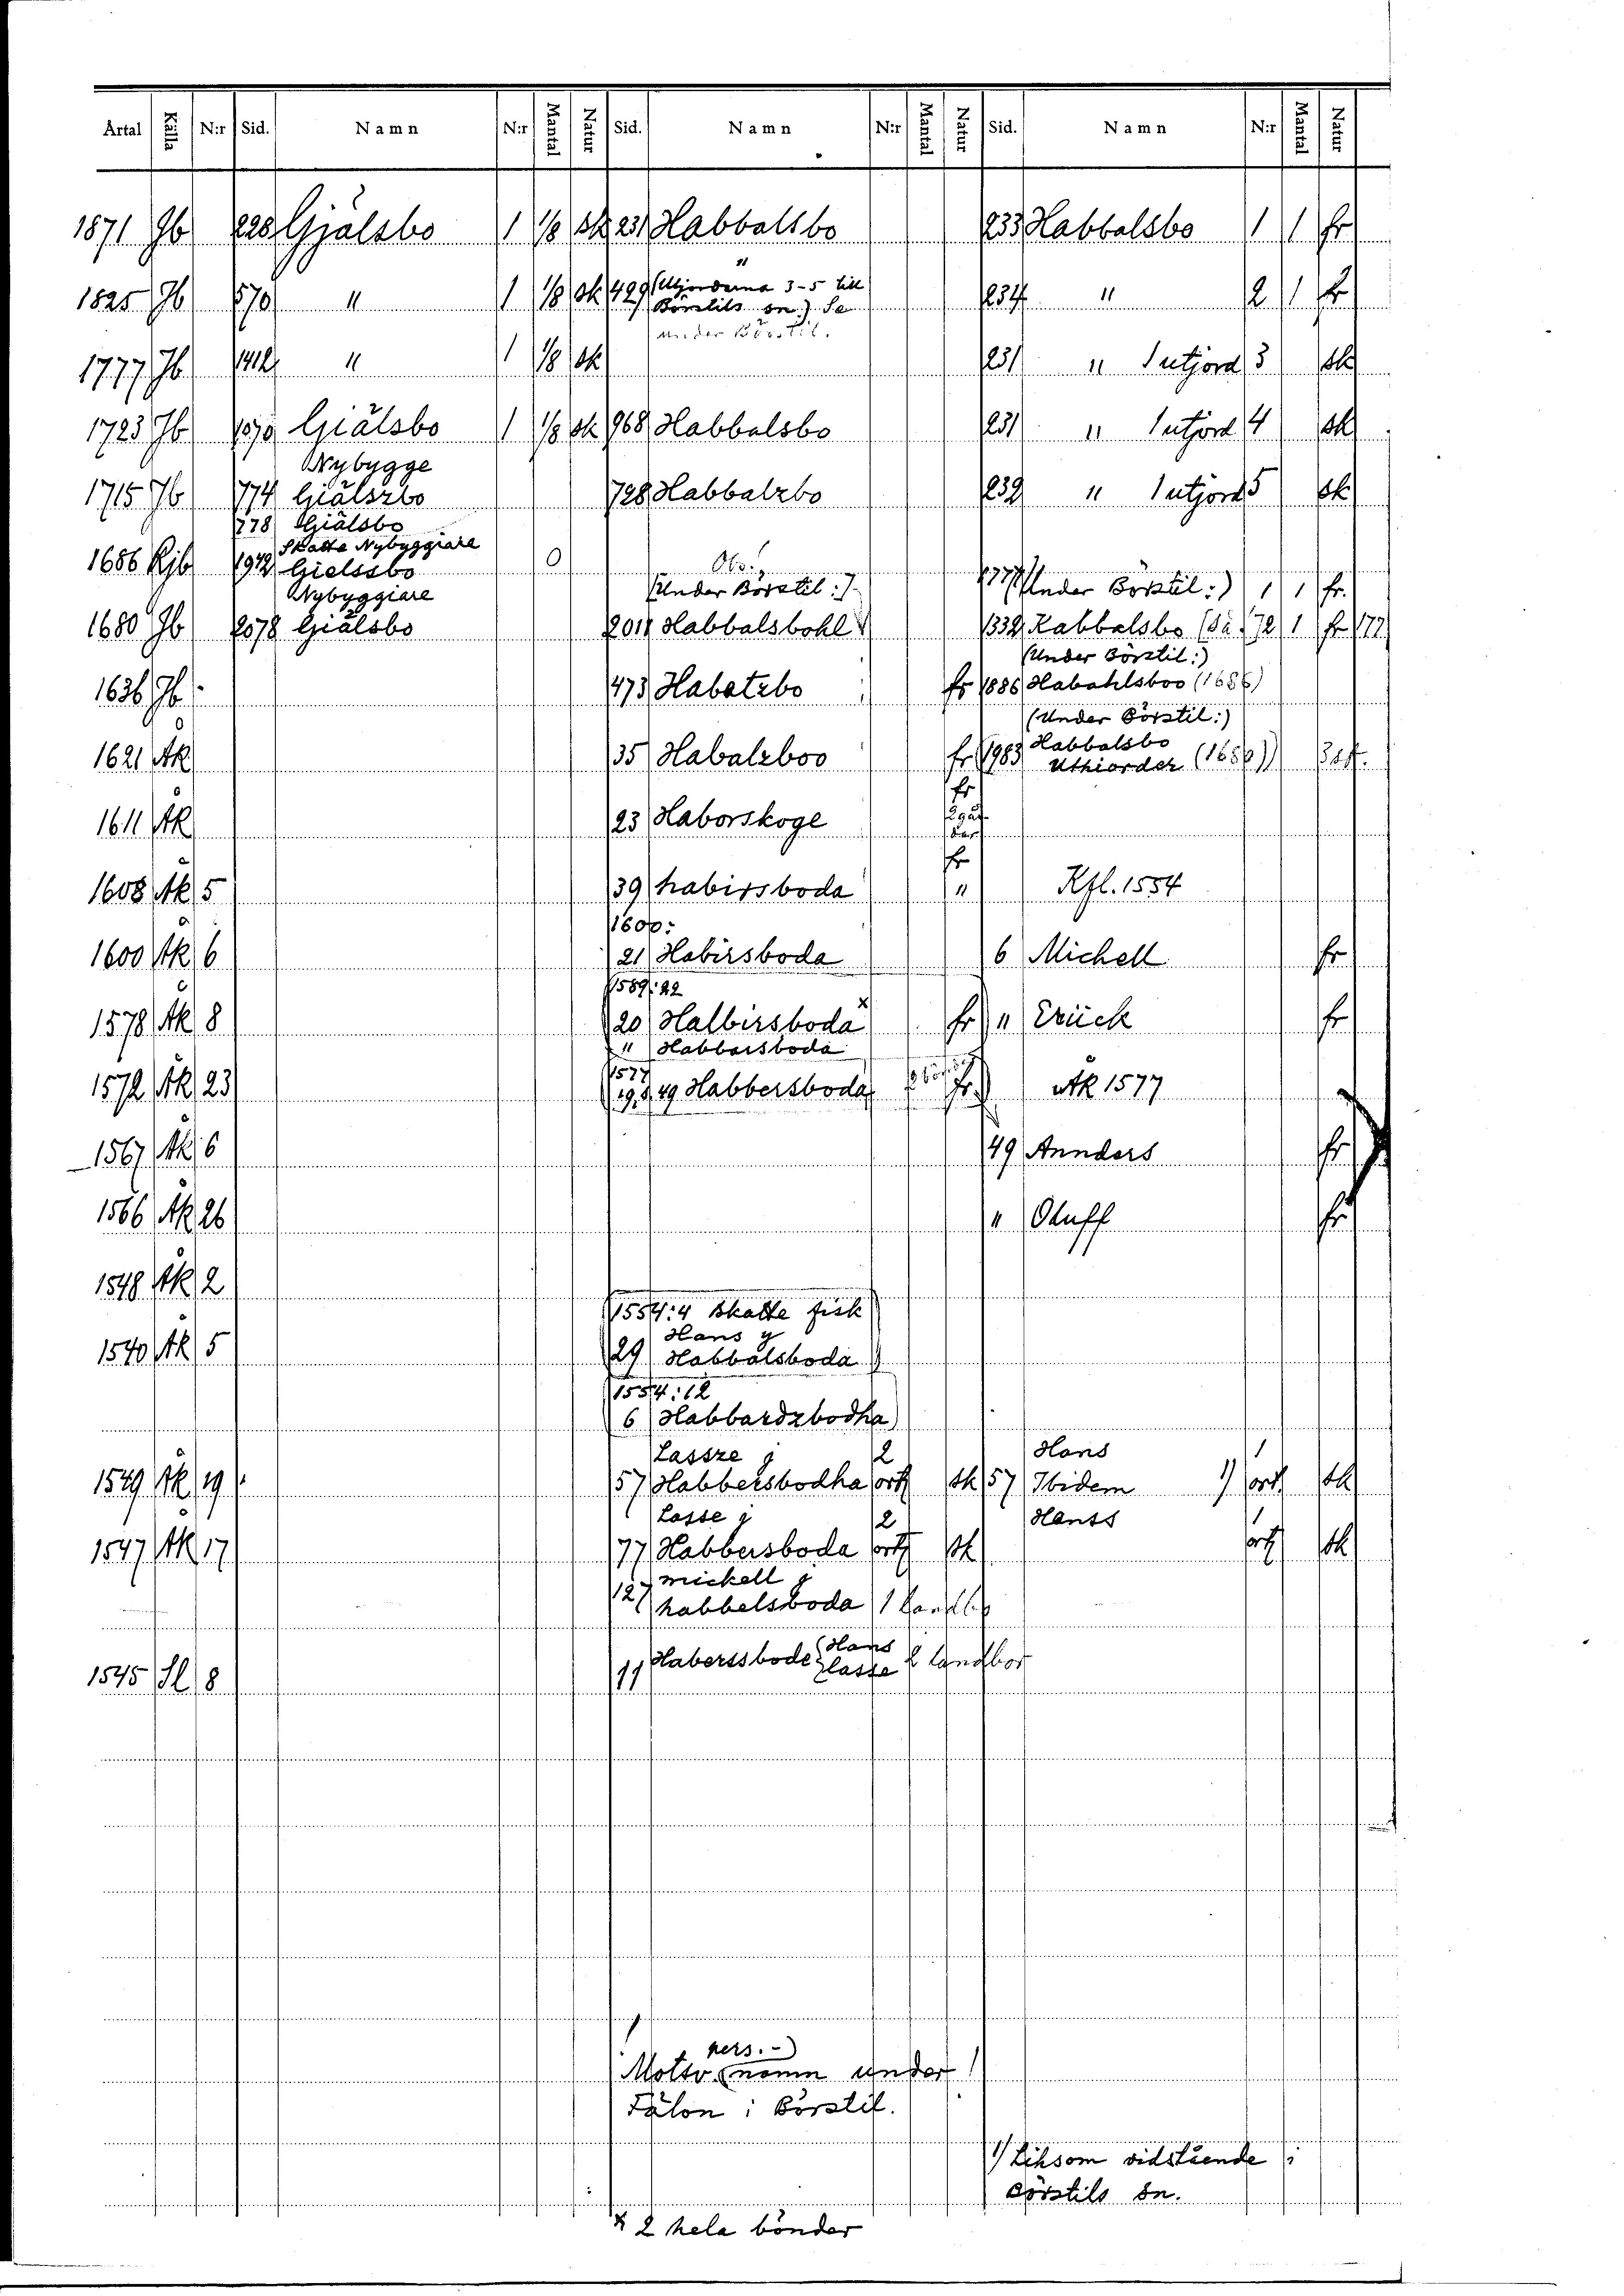 Årtal Källa N:r Sid. Namn N:r Mantal Natur Sid. Namn N:r Mantal Natur Sid. Namn N:r Mantal Natur
1871 Jb 228 Gjälsbo 1 1/8 sk 231 Habbalsbo 233 Habbalsbo 1 1 fr
"
1825 Jb 570 " 1 1/8 sk 429 (Utjorderna 3-5 till 234 " 2 1 fr
Börstils sn.) Se
under Börstil.
1777 Jb 1412 " 1 1/8 sk 231 " 1 utjord 3 sk
1723 Jb 1070 Giälsbo 1 1/8 sk 968 Habbalsbo 231 " 1 utjord 4 sk
Nybygge
1715 Jb 774 Giälszbo 728 Habbalzbo 232 " 1 utjord 5 sk
778 Giälsbo
Skatte Nybyggiare
1686 Rjb 1942 Gielssbo 0 Obs.!
(Under Börstil:) 1777 (Under Börstil:) 1 1 fr.
Nybyggiare
1680 Jb 2078 Giälsbo 2011 Habbalsbohl 1332 Habbalsbo 72 1 fr 177
(Under Börstil:)
1636 Jb 473 Habatzbo fr 1886 Habahlsboo (1686)
(Under Börstil:)
1621 Åk 35 Habalzboo fr 1983 Habbalsbo
Uthiorder (1680)
fr
1611 Åk 23 Haborskoge 2 går
dar
fr
1608 Åk 5 39 habirsboda " Kfl. 1554
1600:
1600 Åk 6 21 Habirsboda 6 Michell fr
1589:22
1578 Åk 8 20 Halbirsboda x fr " Eriick fr
" Habborsboda
1577
1572 Åk 23 19, 49 Habbersboda fr. Åk 1577
1567 Åk 6 49 Annders fr
1566 Åk 26 " Oluff fr
1548 Åk 2
1554:4 Skatte fisk
Hans y
1540 Åk 5 29 Habbalsboda
1554:12
6 Habbardzbodha
Lassze j 2 Hans 1
1549 Åk 19 57 Habbersbodha ort sk 57 Ibidem 1) ort sk
Lasse j 2 Hanss 1
1547 Åk 17 77 Habbersboda ort sk ort sk
mickell j
127 habbelsboda 1 landbo
Hans
1545 Sl 8 11 Haberssbode lasse 2 landbor
pers.-)
Motsv. namn under
Fälön i Börstil.
1) Liksom vidstående i
Börstils sn.
x 2 hela bönder